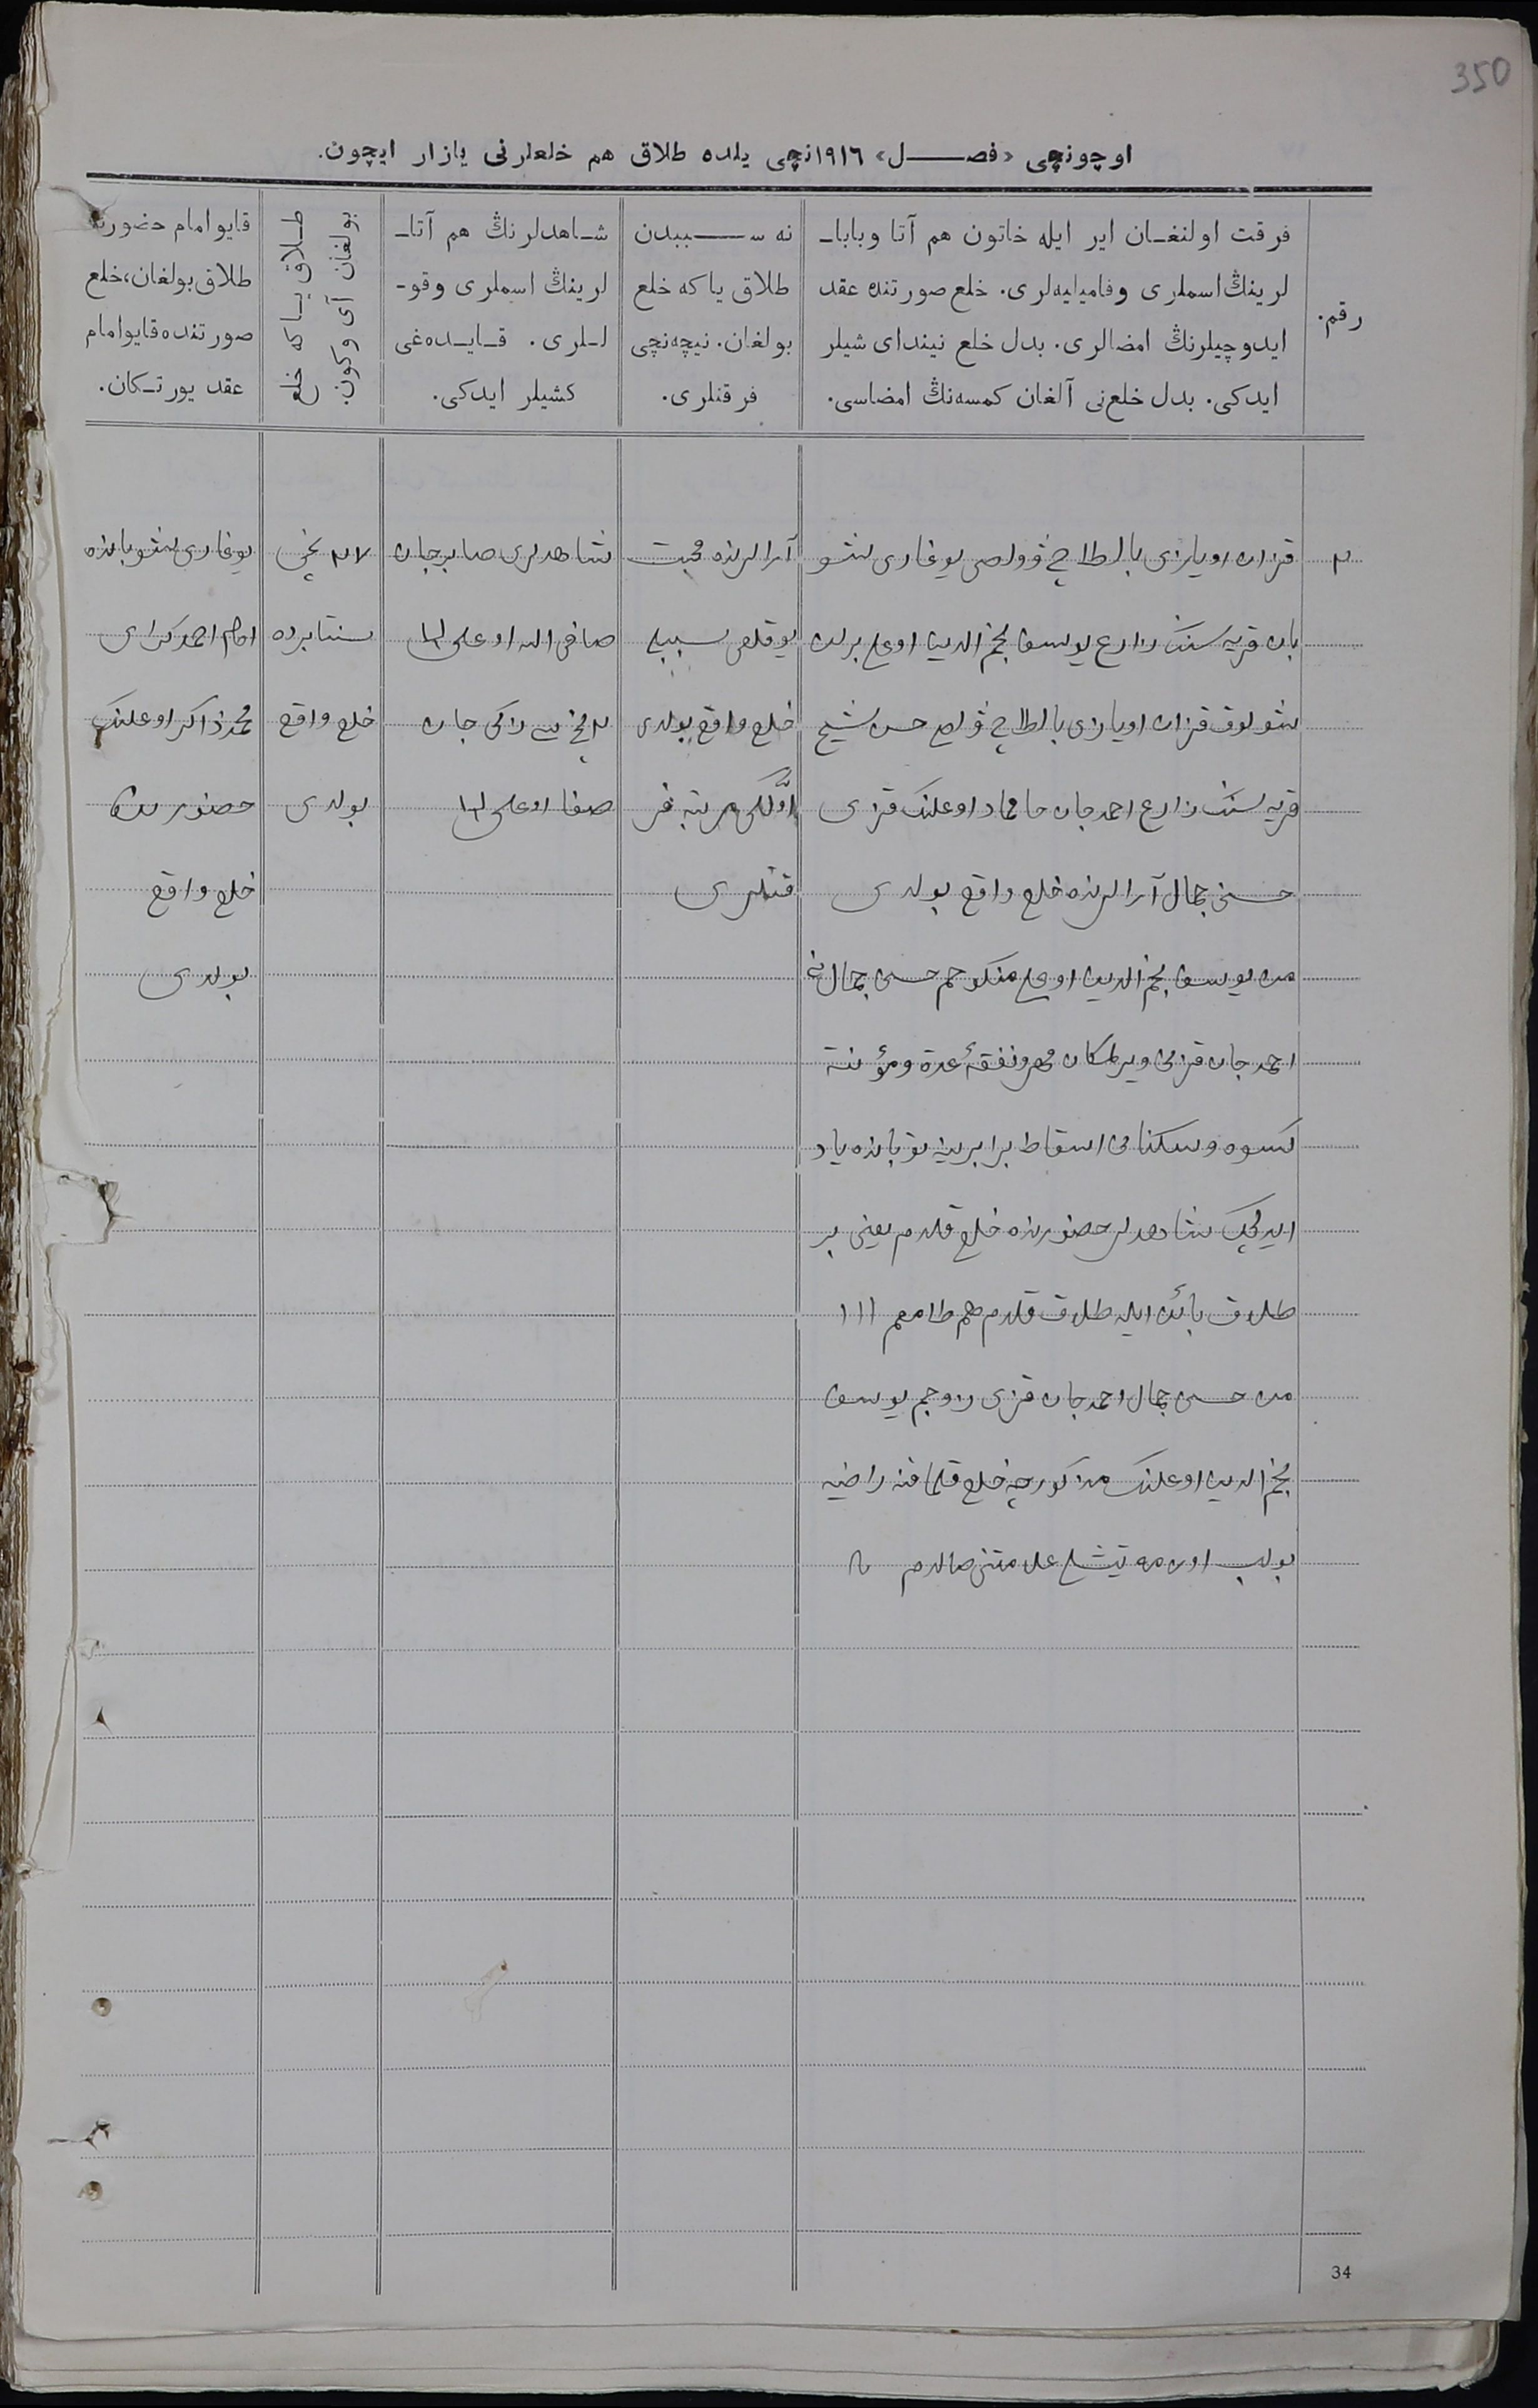 350
اوچونچی «فصل» ١٩١٦نچی یلده طلاق هم خلعلرنی یازار ایچون.
رقم.
فرقت اولنغان ایر ایله خاتون هم آتا وبابا-
لرینڭ اسملری وفامیلیه‌لری. خلع صورتنده عقد
ایدوچیلرنڭ امضالری. بدل خلع نیندای شیلر
ایدکی. بدل خلع‌نی آلغان کمسه‌نڭ امضاسی.
نه سببدن
طلاق یاکه خلع
بولغان. نیچه‌نچی
فرقتلری.
شاهدلرنڭ هم آتا-
لرینڭ اسملری وقو-
للری. قایده‌غی
کشیلر ایدکی.
طلاق یاکه خلع
بولغان آی وکون
قایو امام حضورنده
طلاق بولغان، خلع
صورتنده قایو امام
عقد یورتکان.
٢
قزان اویازی بالطاچ ڤولصی یوغاری
قریه سنڭ زارع یوسف نجم الدین اوغلی برلن
شولوق قزان اویازی بالطاچ حسن شیخ
قریه سنڭ زارع احمدجان اوغلینڭ قزی
حسنی جمال آرالرنده خلع واقع بولدی
من یوسف نجم الدین اوغلی منکوحم حسنی جمال نی
احمدجان قزی مهر ونفقهٔ عدة ومؤنة
کسوه وسکنا نی اسقاط برابرینه یاد
شاهدلر حضورنده خلع قلدم یعنی بر
طلاق بائن ایله طلاق قلدم هم طامغام ااا
من حسنی جمال احمدجان قزی زوجم یوسف
نجم الدین اوغلینڭ مذکورچه خلع راضیه
بولب علامتنی صالدم
آرالرنده محبت
یوقلق سببلی
خلع واقع بولدی
اوّلکی مرتبه فر
قتلری
شاهدلری صابرجان
صافی الله اوغلی
٢ نچی سی زاکی جان
صفا اوغلی
٢٧ نچی
سنتابرده
خلع واقع
بولدی
یوغاری
امام احمدکرای
محمدذاکر اوغلینڭ
حضورنده
خلع واقع
بولدی
34